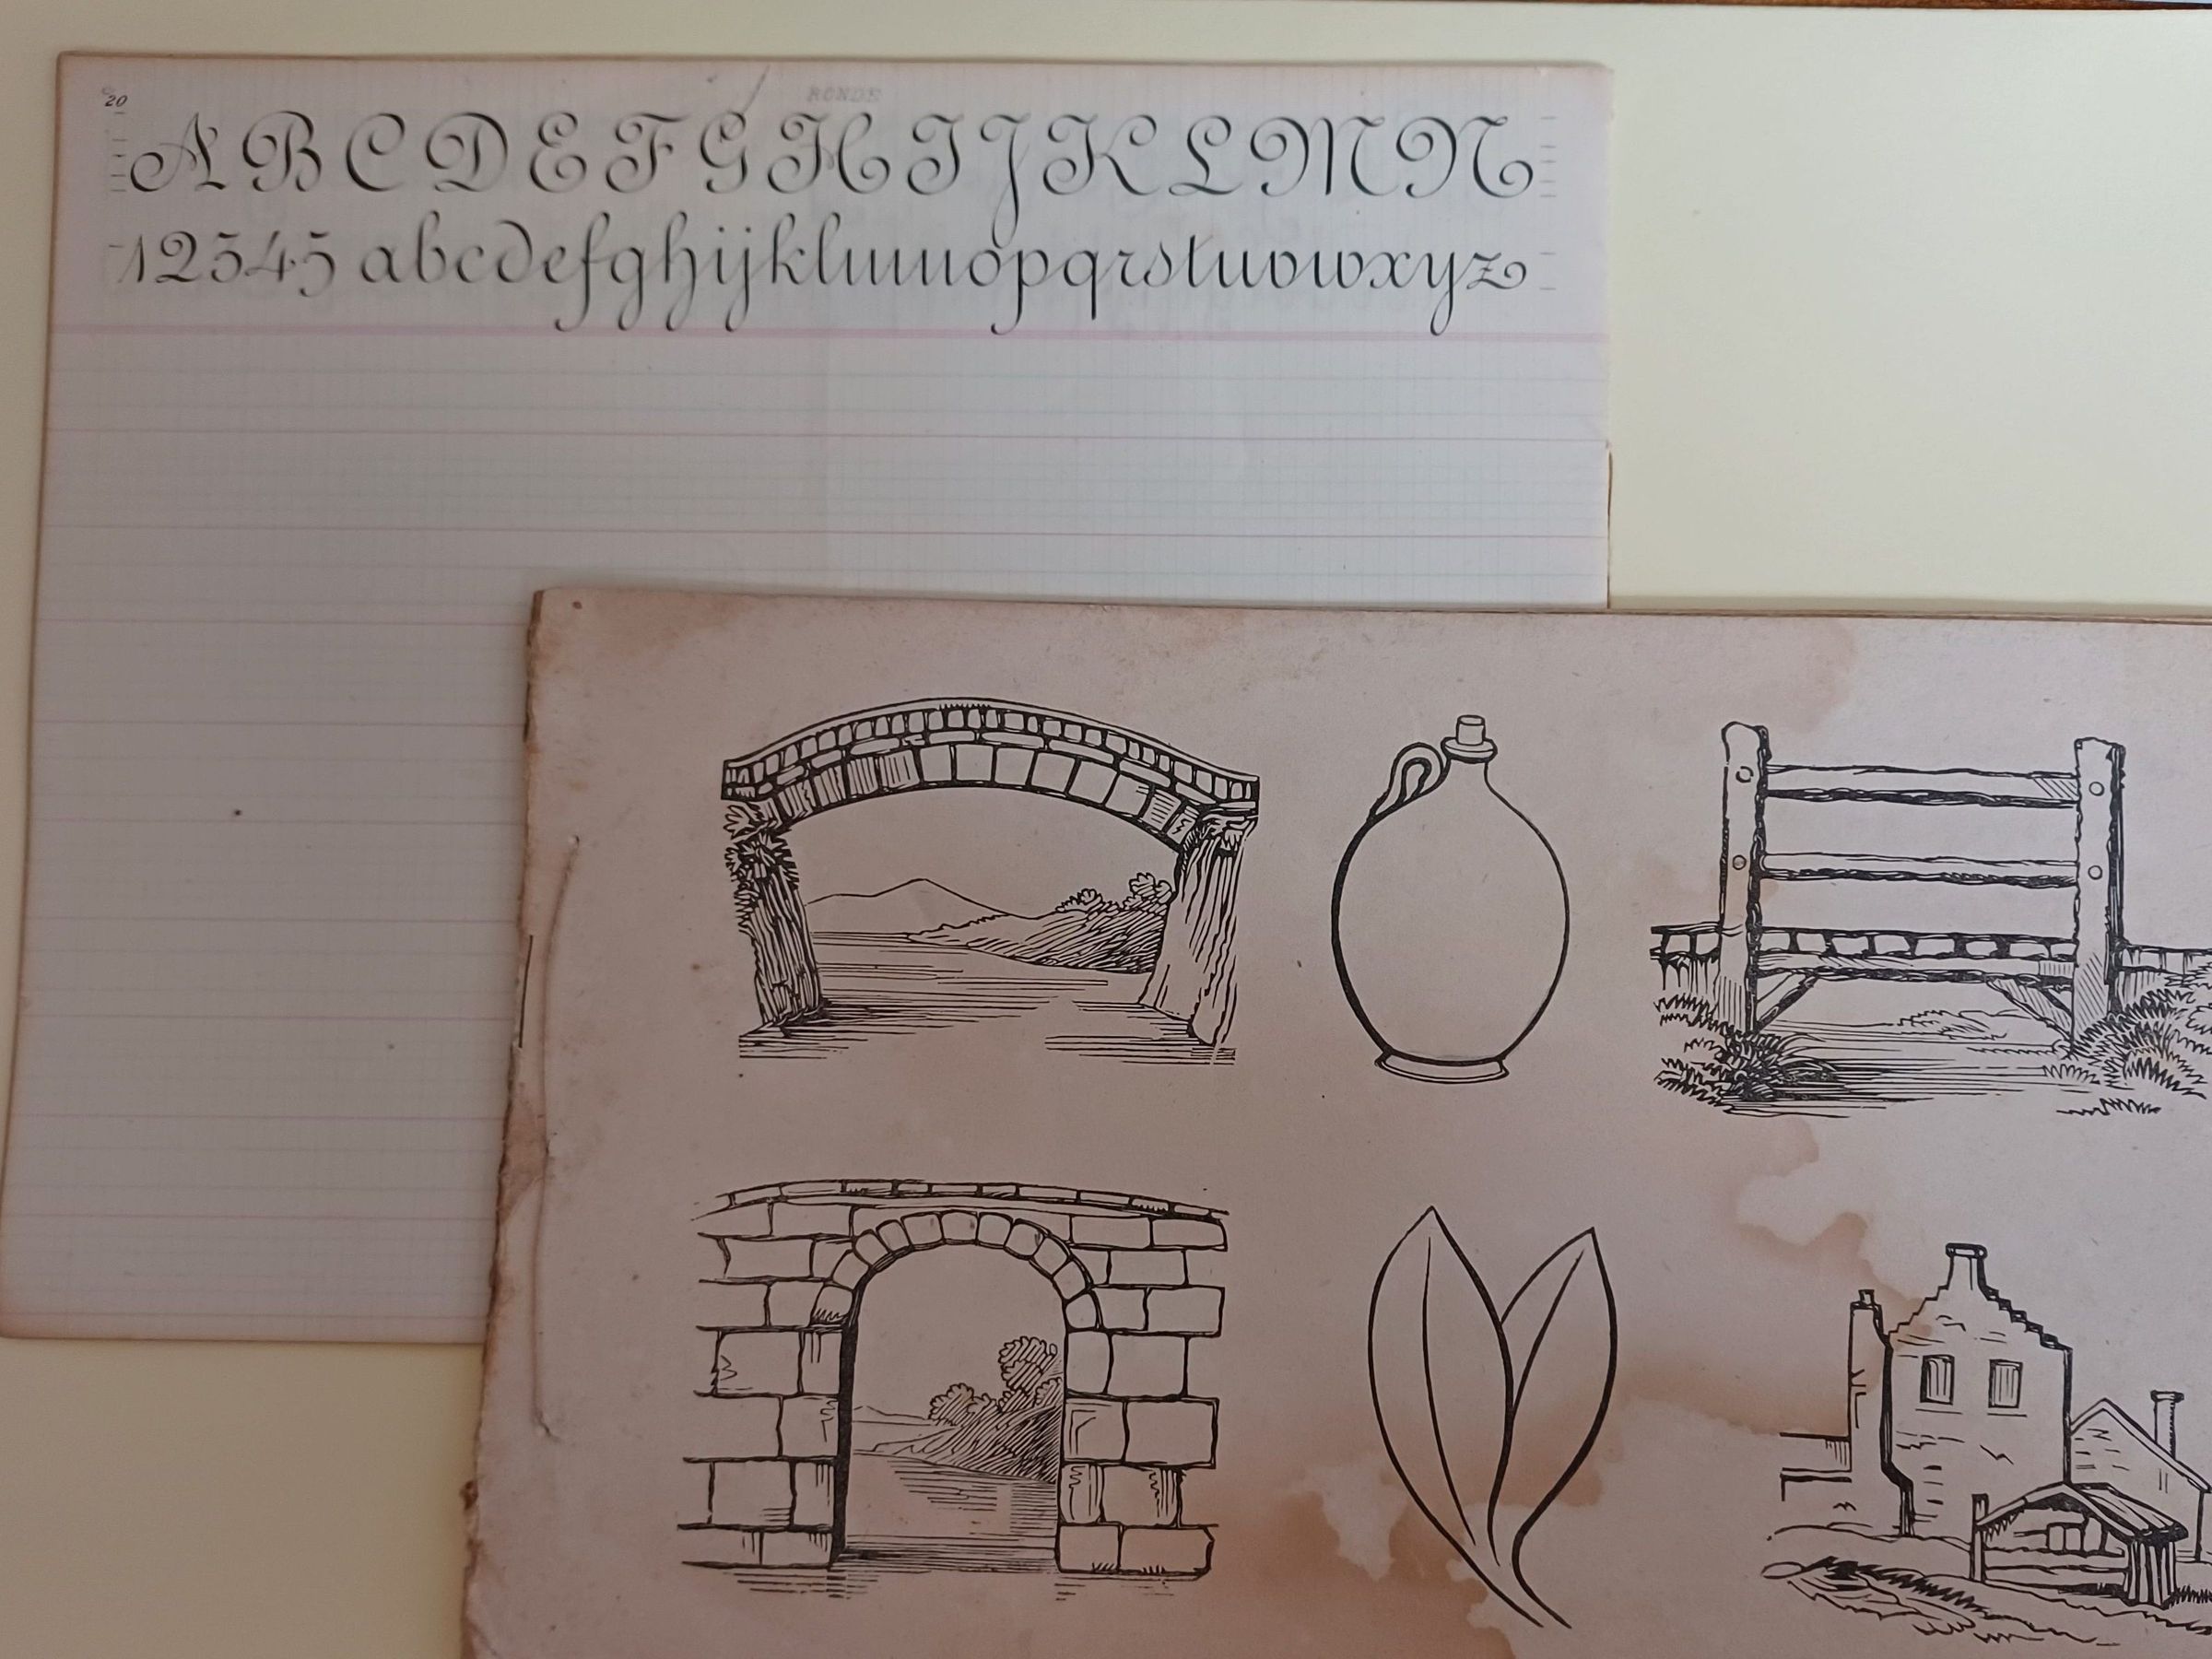 20
RONDE
A B C D E F G H I J K L M N
12345 abcdefghijklmnopqrstuvwxyz